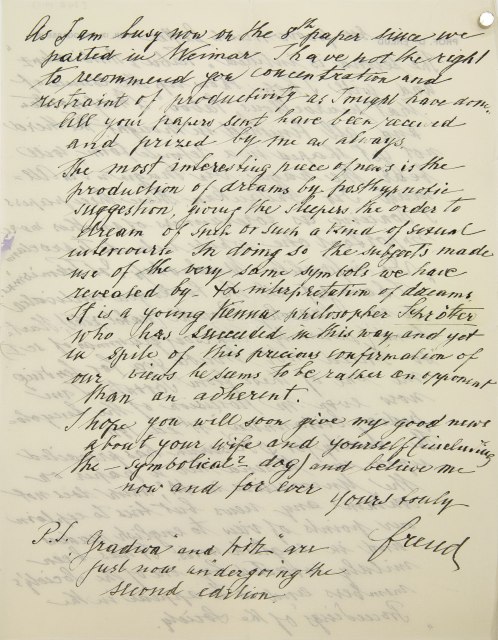 As I am busy now on the 8th paper since we
parted in Weimar I have not the right
to recommend you concentration and
restraint of productivity as I might have done.
All your papers sent have been received
and prized by me as always.
The most interesting piece of news is the
production of dreams by posthypnotic
suggestion, giving the sleepers the order to
dream of such or such a kind of sexual
intercourse. In doing so the subjects made
use of the very same symbols we have
revealed by interpretation of dreams.
It is a young Vienna philosopher Schrötter
who has succeeded in this way and yet
in spite of this precious confirmation of
our views he seems to be rather an opponent
than an adherent.
I hope you will soon give my good news
about your wife and yourself (including
the – symbolical? dog) and believe me
now and for ever
yours truly
Freud
P.S. "Gradiva" and are
just now undergoing the
second edition.